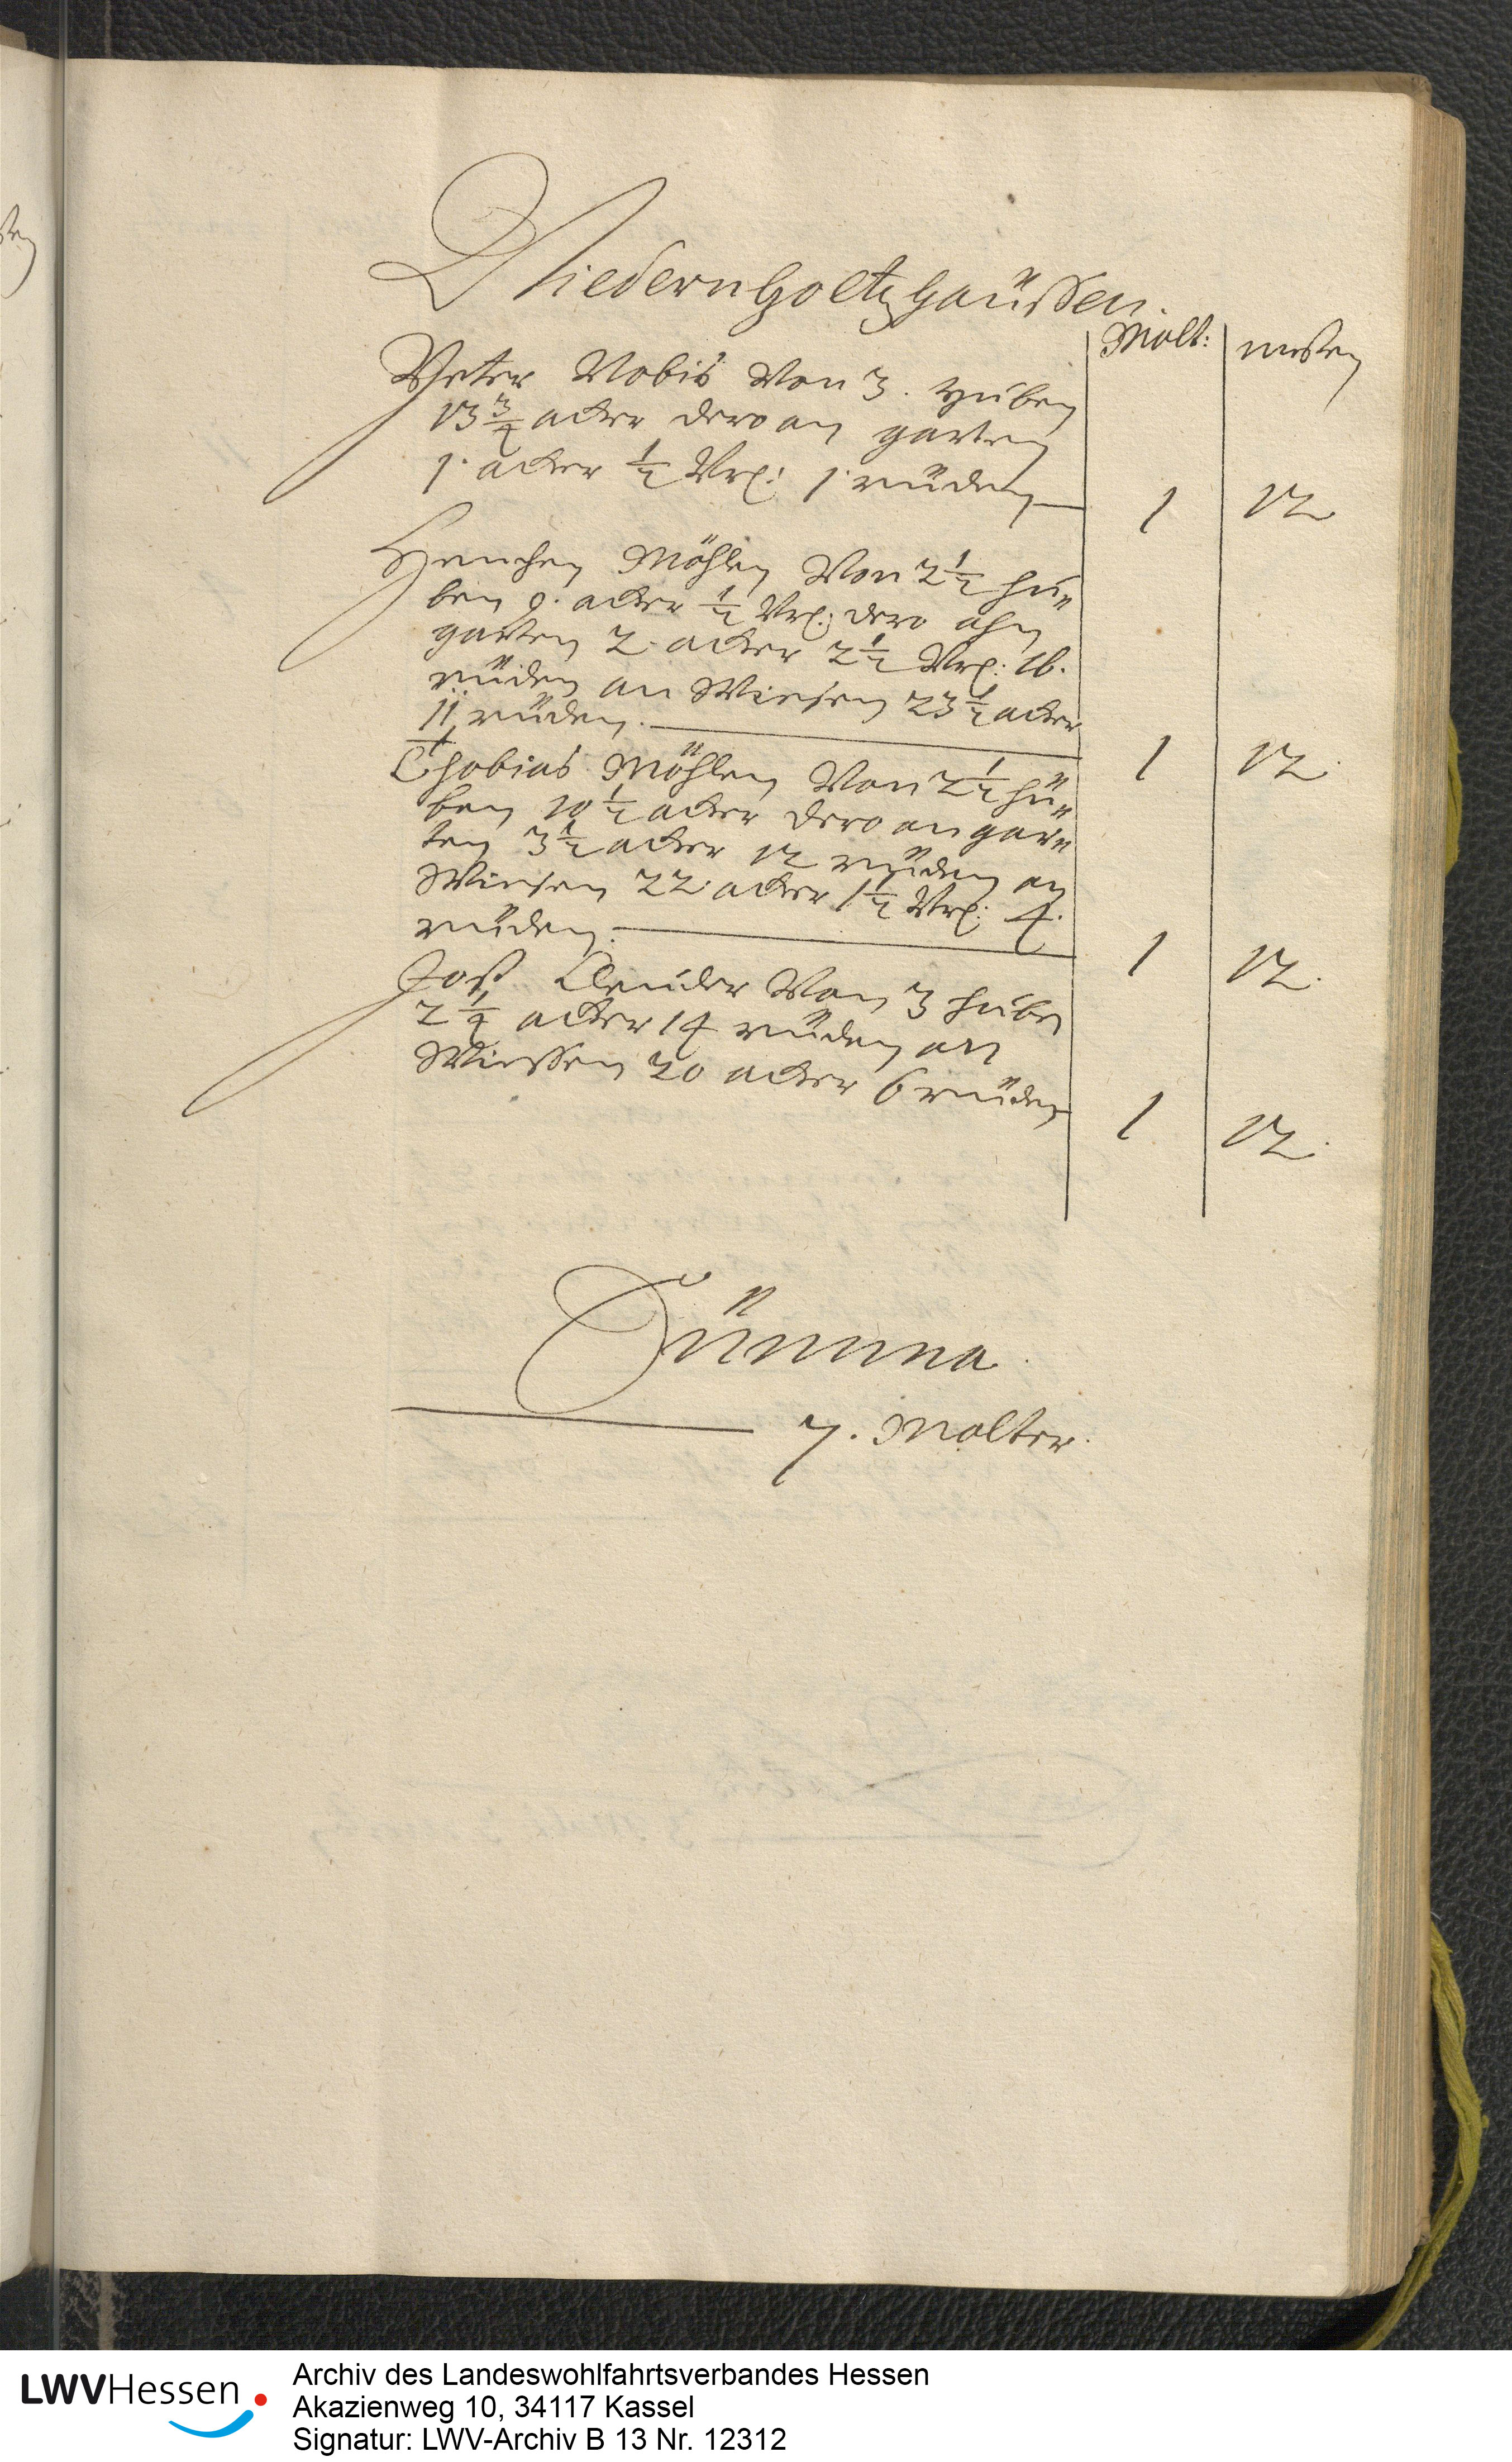 Niedernholtzhaüßen.
Molt: mesten
Peter Nobis Von 3. Huben
13 3/4 acker dero an garten
1. acker 1/2 Vrl: 1 rüden 1 12
Henchen Möhlen Von 2 1/2 hu„
ben 9. acker 1/2 Vrl: dero ahn
garten 2. acker 2 1/2 Vrl: 16.
rüden an Wiesen 23 1/2 acker
11 rüden. 1 12.
Thobias Möhlen Von 2 1/2 hü„
ben 10 1/2 acker dero an gar„
ten 3 1/2 acker 12 rüden an
Wiesen 22 acker 1 1/2 Vrl: 4.
rüden. 1 12.
Jost Clauder Von 3 huben
2 1/4 acker 14 rüden an
Wießen 20 acker 6 rüden 1 12.
Sümma
7. Malter.
LWVHessen
Archiv des Landeswohlfahrtsverbandes Hessen
Akazienweg 10, 34117 Kassel
Signatur: LWV-Archiv B 13 Nr. 12312